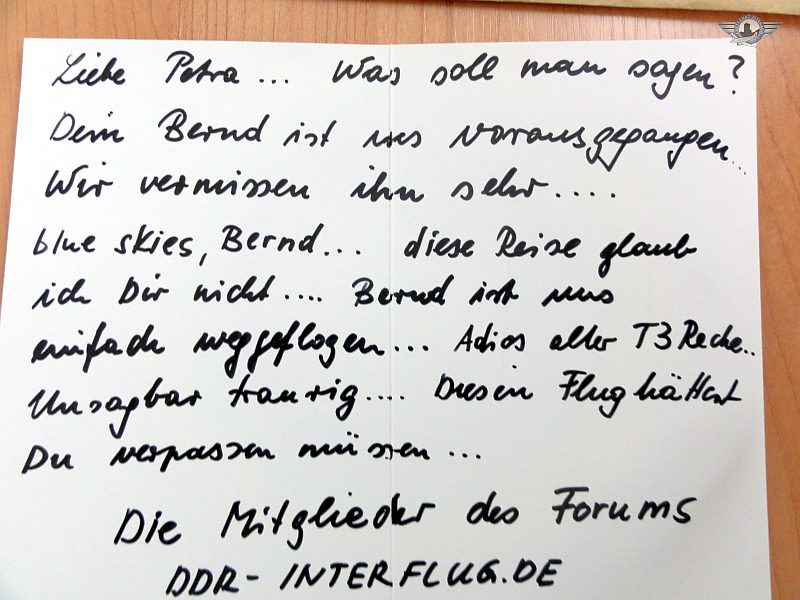 Liebe Petra... Was soll man sagen?
Dein Bernd ist uns vorausgegangen...
Wir vermissen ihn sehr....
blue skies, Bernd... diese Reise glaub
ich Dir nicht.... Bernd ist uns
einfach weggeflogen... Adios alter T3 Recke..
Unsagbar traurig.... Diesen Flug hättest
Du verpassen müssen...
Die Mitglieder des Forums
DDR-INTERFLUG.DE